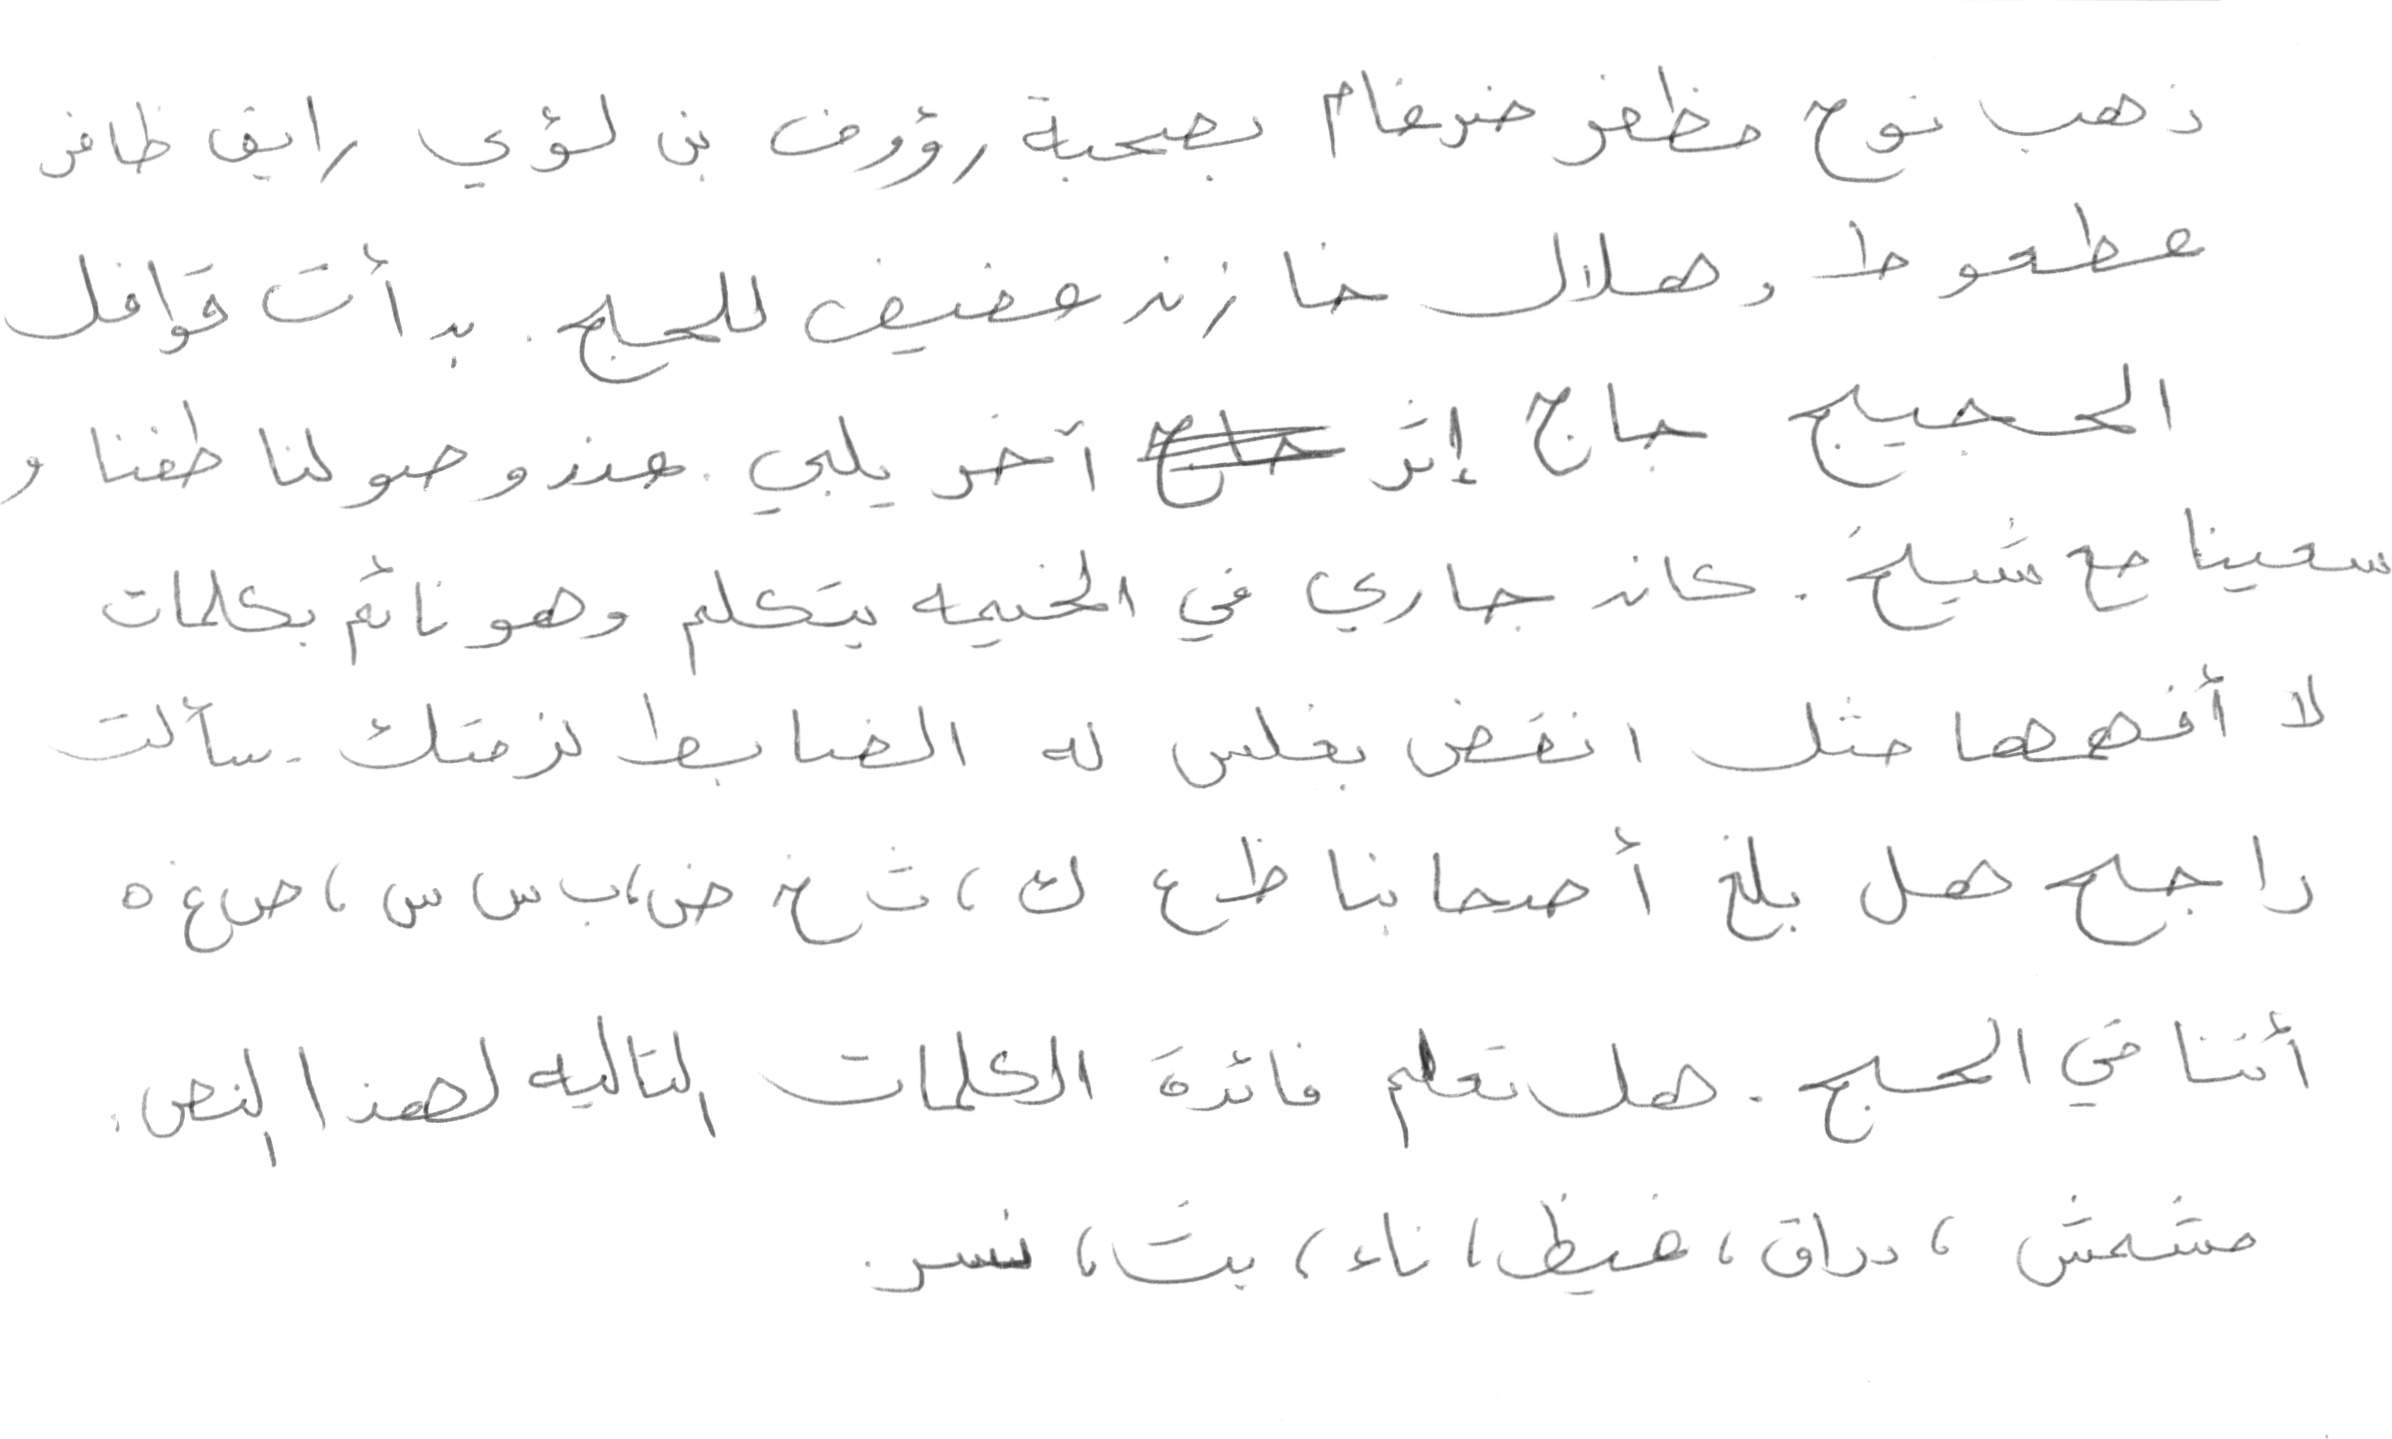 ذهب نوح مظفر ضرغام بصحبة رؤوف بن لؤي رايق ظافر
عطعوط وهلال خازن عفيف للحج. بدأت قوافل
الحجيج حاج إثر آخر يلبي. عند وصولنا طفنا و
سعينا مع شيخ. كان جاري في الخيمه يتكلم وهو نائم بكلمات
لا أفهمها مثل انقض بغلس له الضابط لزمتك. سألت
راجح هل بلغ أصحابنا ظ ع ك، ث خ ض، ب س س، ص غ ه
أننا في الحج. هل تعلم فائدة الكلمات التاليه لهذا النص:
مشمش، دراق، غيظ، ناء، بت، نسر.